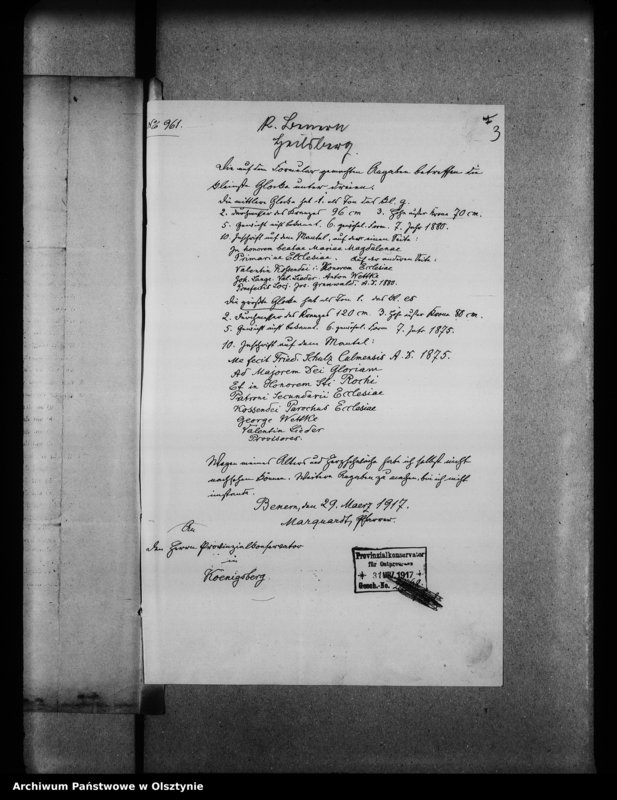 No 961.
3
K. Benern
Heilsberg.
Die auf dem Formular gemachten Angaben betreffen die
kleinste Glocke unter dreien.
Die mittlere Glocke hat 1. als Ton das Bl. g.
2. Durchmesser des Kranzes 96 cm 3. Höhe außer Krone 70 cm.
5. Gewicht nicht bekannt. 6. gewöhnl. Form. 7. Jahr 1880.
10. Inschrift auf dem Mantel, auf der einen Seite:
In honorem beatae Mariae Magdalenae
Primariae Ecclesiae. Auf der anderen Seite:
Valentin Kossendei: Honorem Ecclesiae
Joh. Lange. Val. Lieder. Anton Wettke
Praefectus Loci. Jos. Grunwald. A. D. 1880.
Die größte Glocke hat als Ton 1. das Bl. es
2. Durchmesser des Kranzes 120 cm. 3. Höhe außer Krone 80 cm.
5. Gewicht nicht bekannt. 6. gewöhnl. Form 7. Jahr 1875.
10. Inschrift auf dem Mantel:
Me fecit Fried. Schulz Culmensis A. D. 1875.
Ad Majorem Dei Gloriam
Et in Honorem Sti Rochi
Patroni Secundarii Ecclesiae
Kossendei Parochus Ecclesiae
George Wettke
Valentin Lieder
Provisores.
Wegen meines Alters und Herzschwäche habe ich selbst nicht
nachsehen können. Weitere Angaben zu machen, bin ich nicht
imstande.
Benern, den 29. Maerz 1917.
Marquardt, Pfarrer.
An
den Herrn Provinzialkonservator
in
Koenigsberg.
Provinzialkonservator
für Ostpreussen
31 MRZ 1917
Gesch.-No.
Archiwum Państwowe w Olsztynie